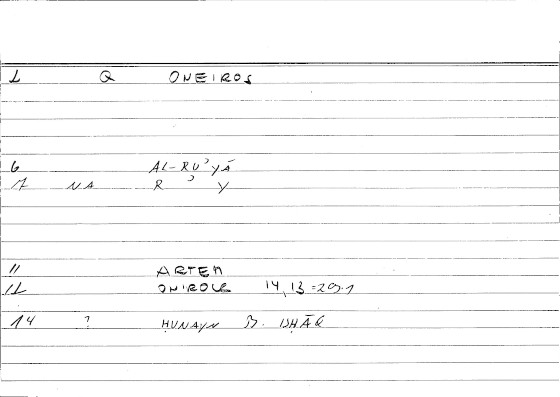 1 Q ONEIROS
6 AL-RUʾYĀ
7 NA R ʾ Y
11 ARTEM
12 ONIROCR 14,13 =
14 ? ḤUNAYN B. ISḤĀQ